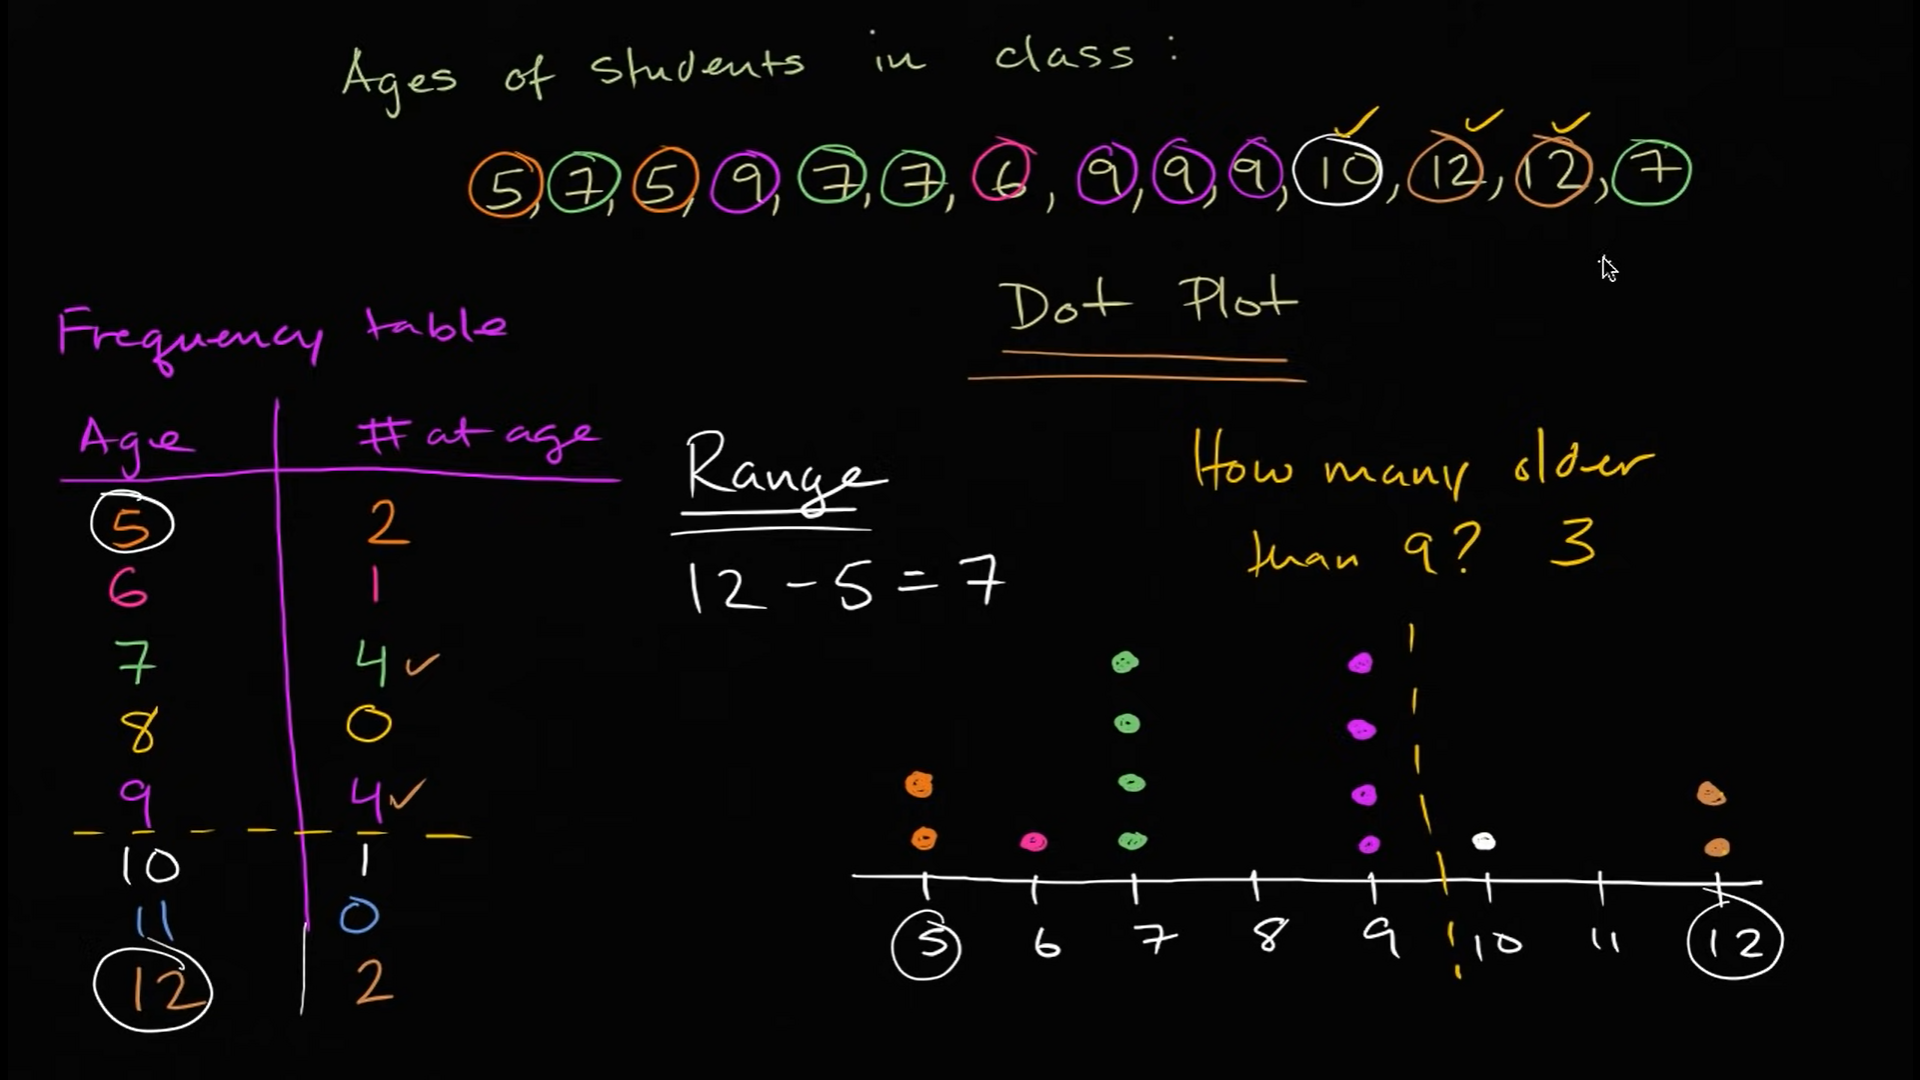 Ages of students in class:
5, 7, 5, 9, 7, 7, 6, 9, 9, 9, 10, 12, 12, 7
Dot Plot
Frequency table
Age # at age
5 2
6 1
7 4
8 0
9 4
10 1
11 0
12 2
Range
12 - 5 = 7
How many older
than 9? 3
5 6 7 8 9 10 11 12